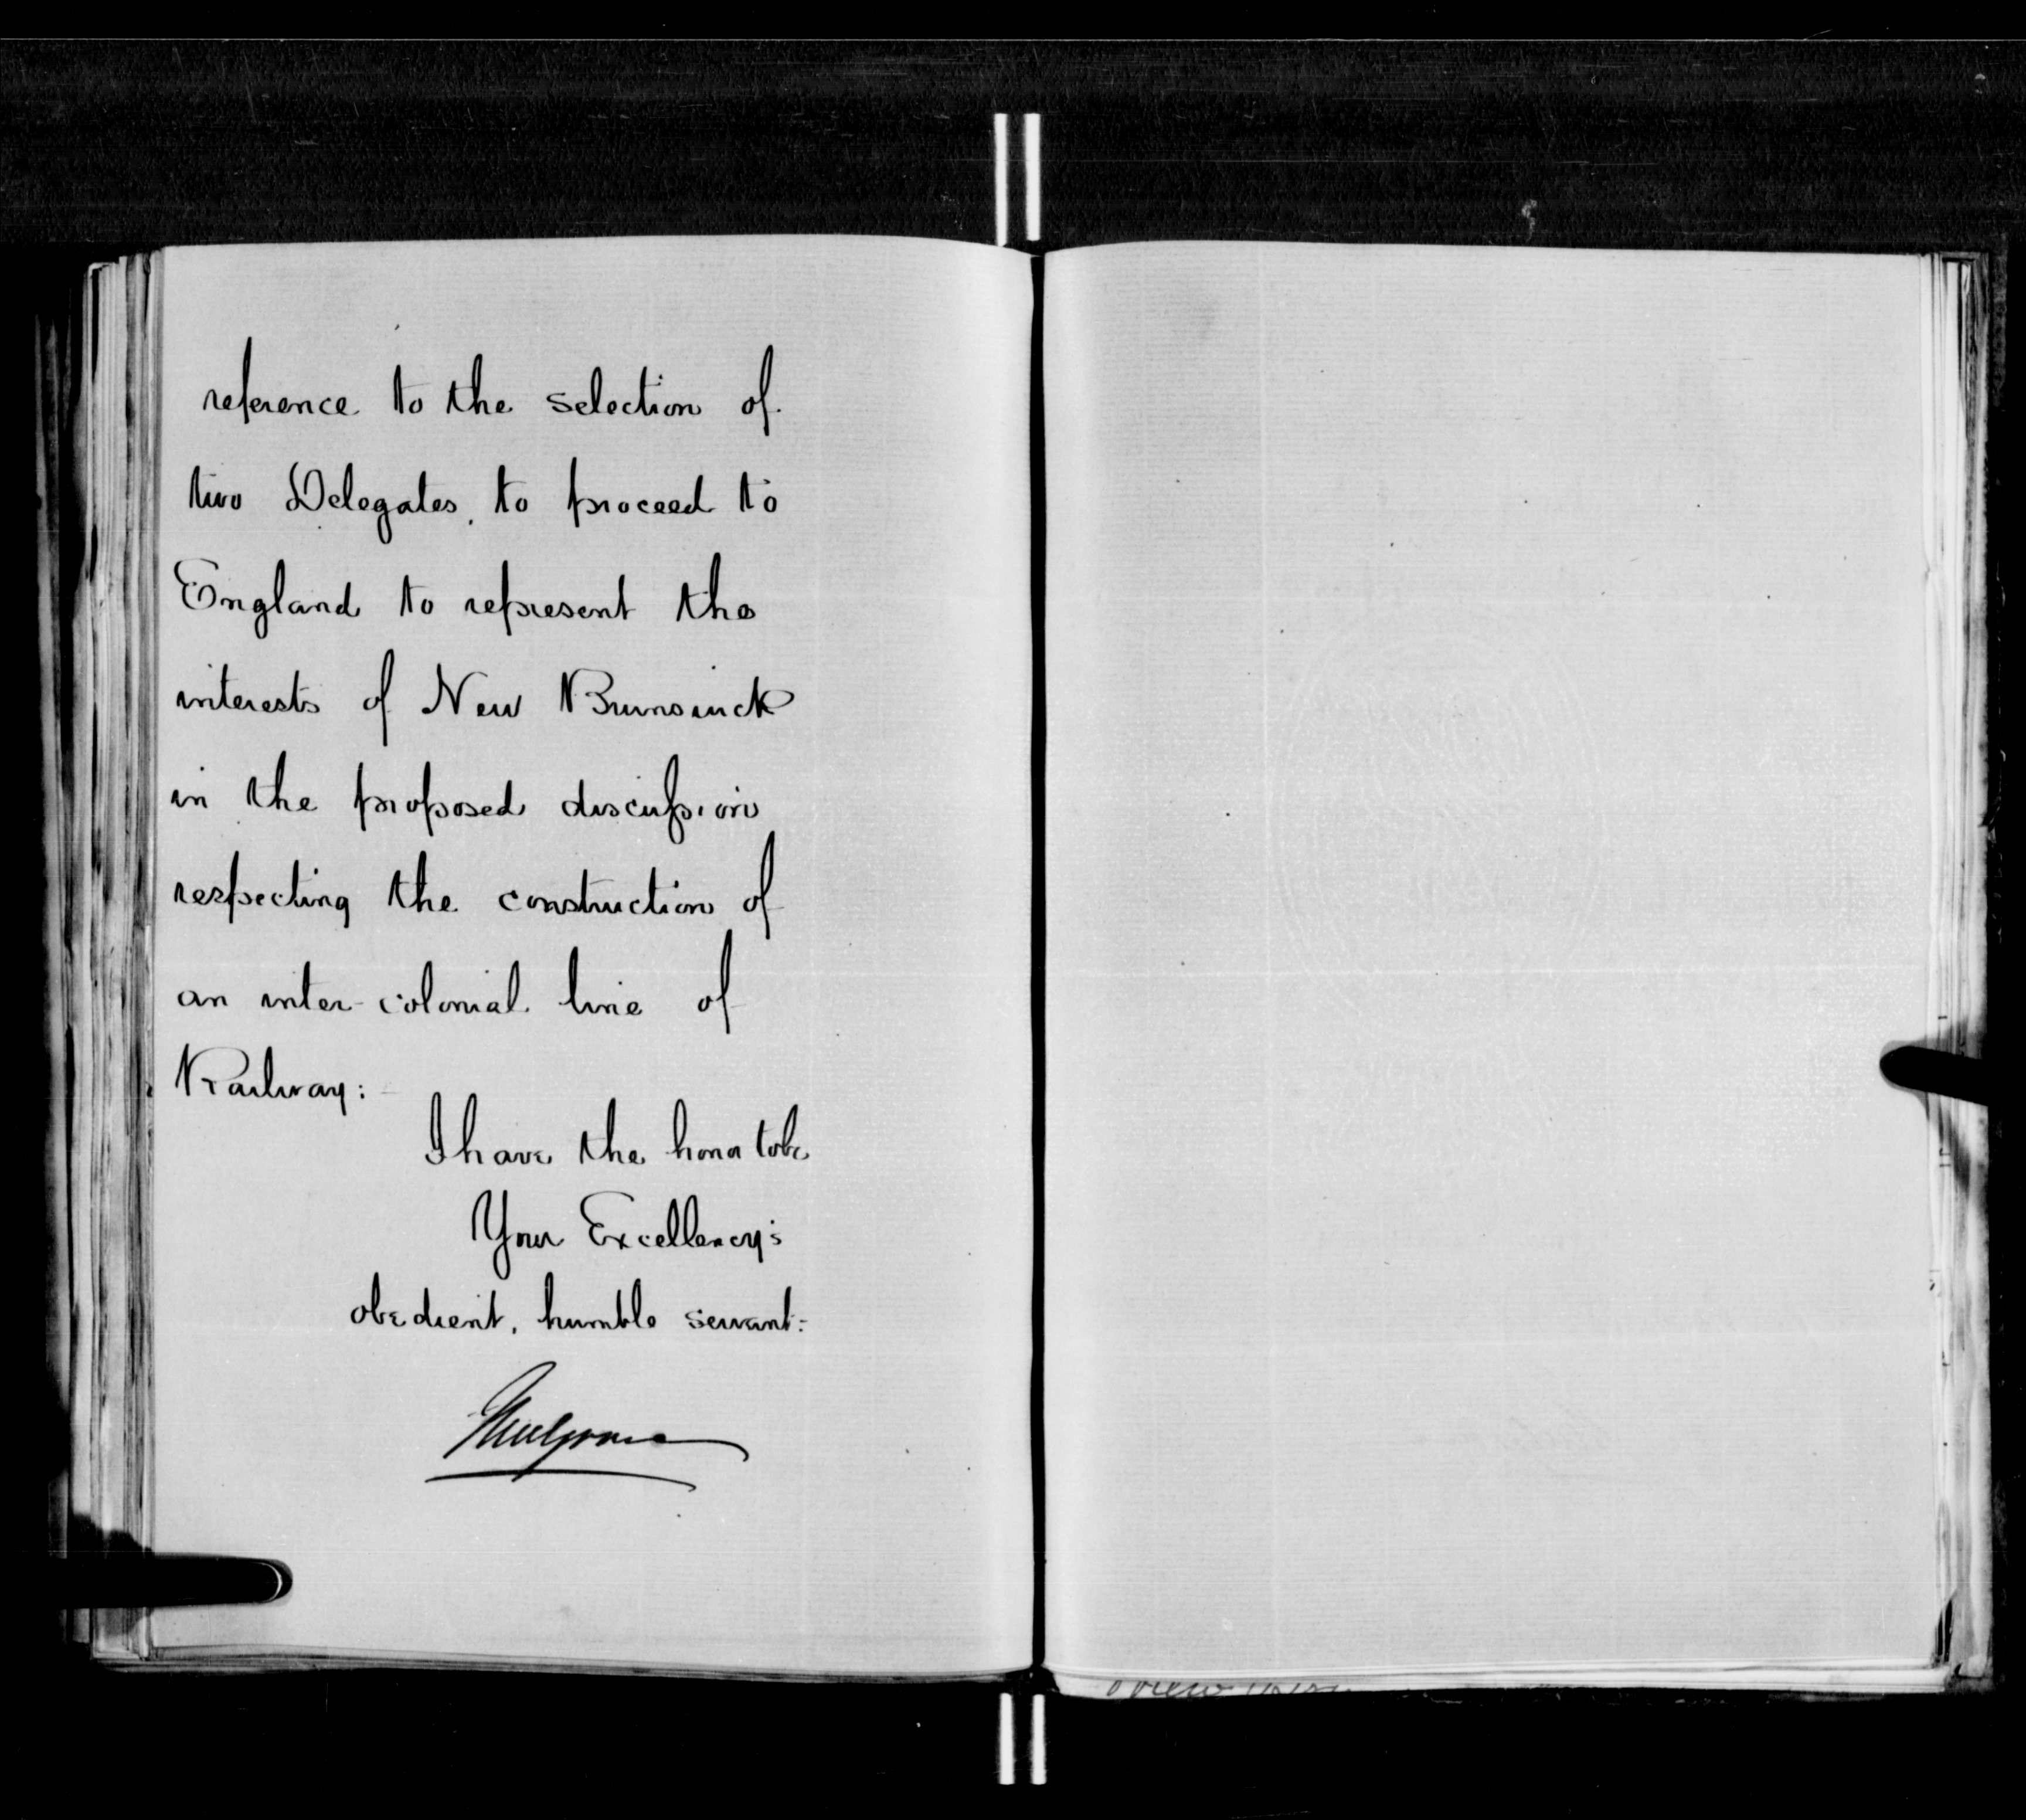 reference to the selection of
two Delegates, to proceed to
England to represent the
interests of New Brunswick
in the proposed discussion
respecting the construction of
an inter-colonial line of
Railway:-
I have the honor to be
Your Excellency's
obedient, humble servant:-
Mulgrave